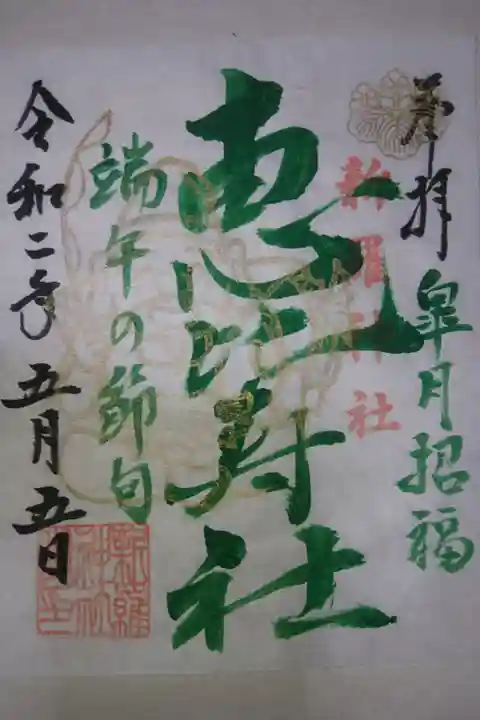 奉拝
皐月招福
新羅神社
恵比寿社
端午の節句
令和二年五月五日